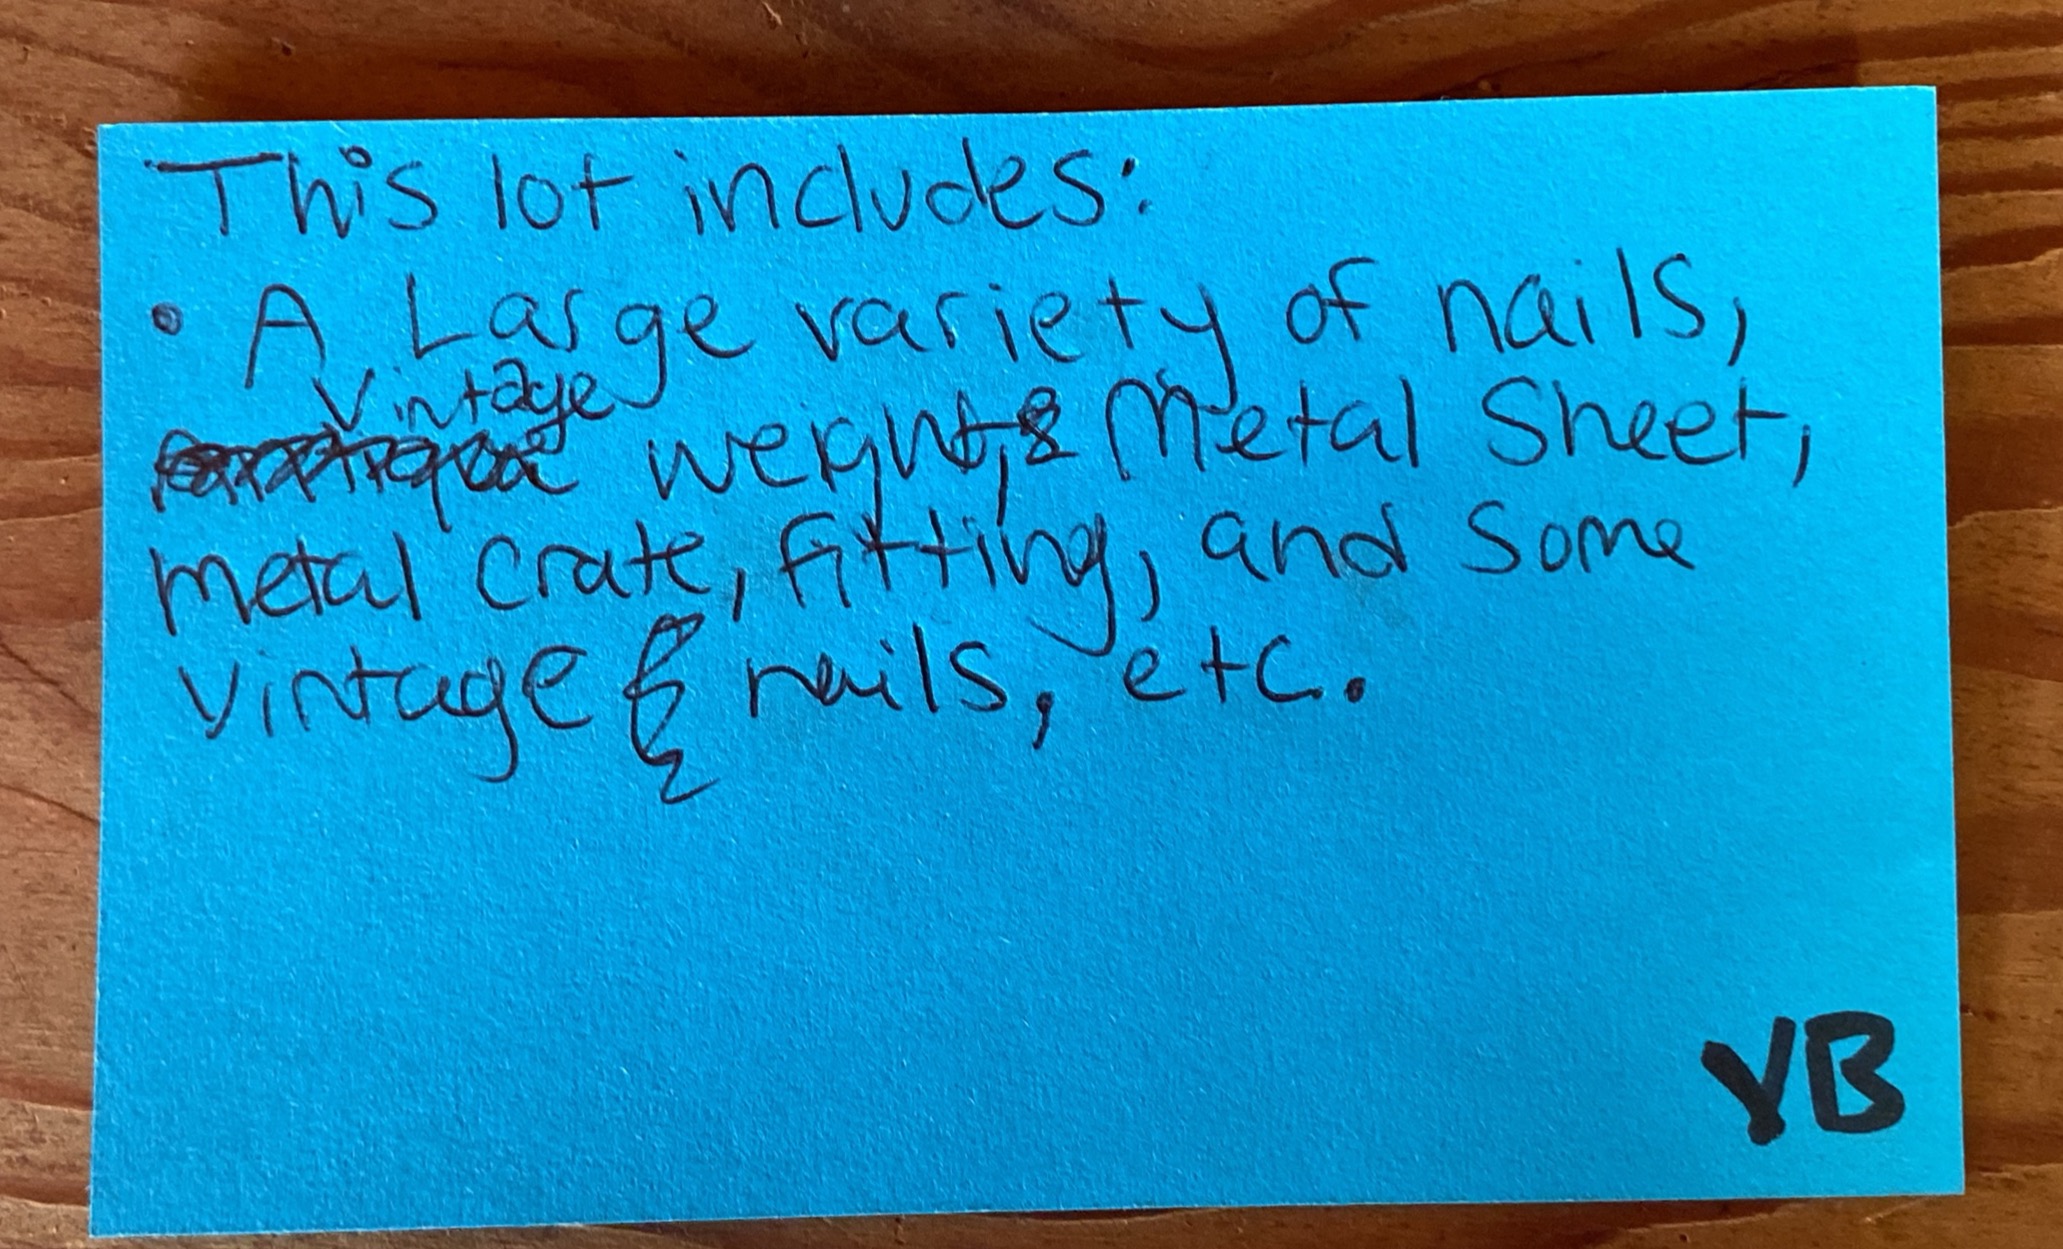 This lot includes:
• A Large variety of nails,
Vintage
weight, & Metal Sheet,
metal crate, fitting, and some
vintage nails, etc.
VB